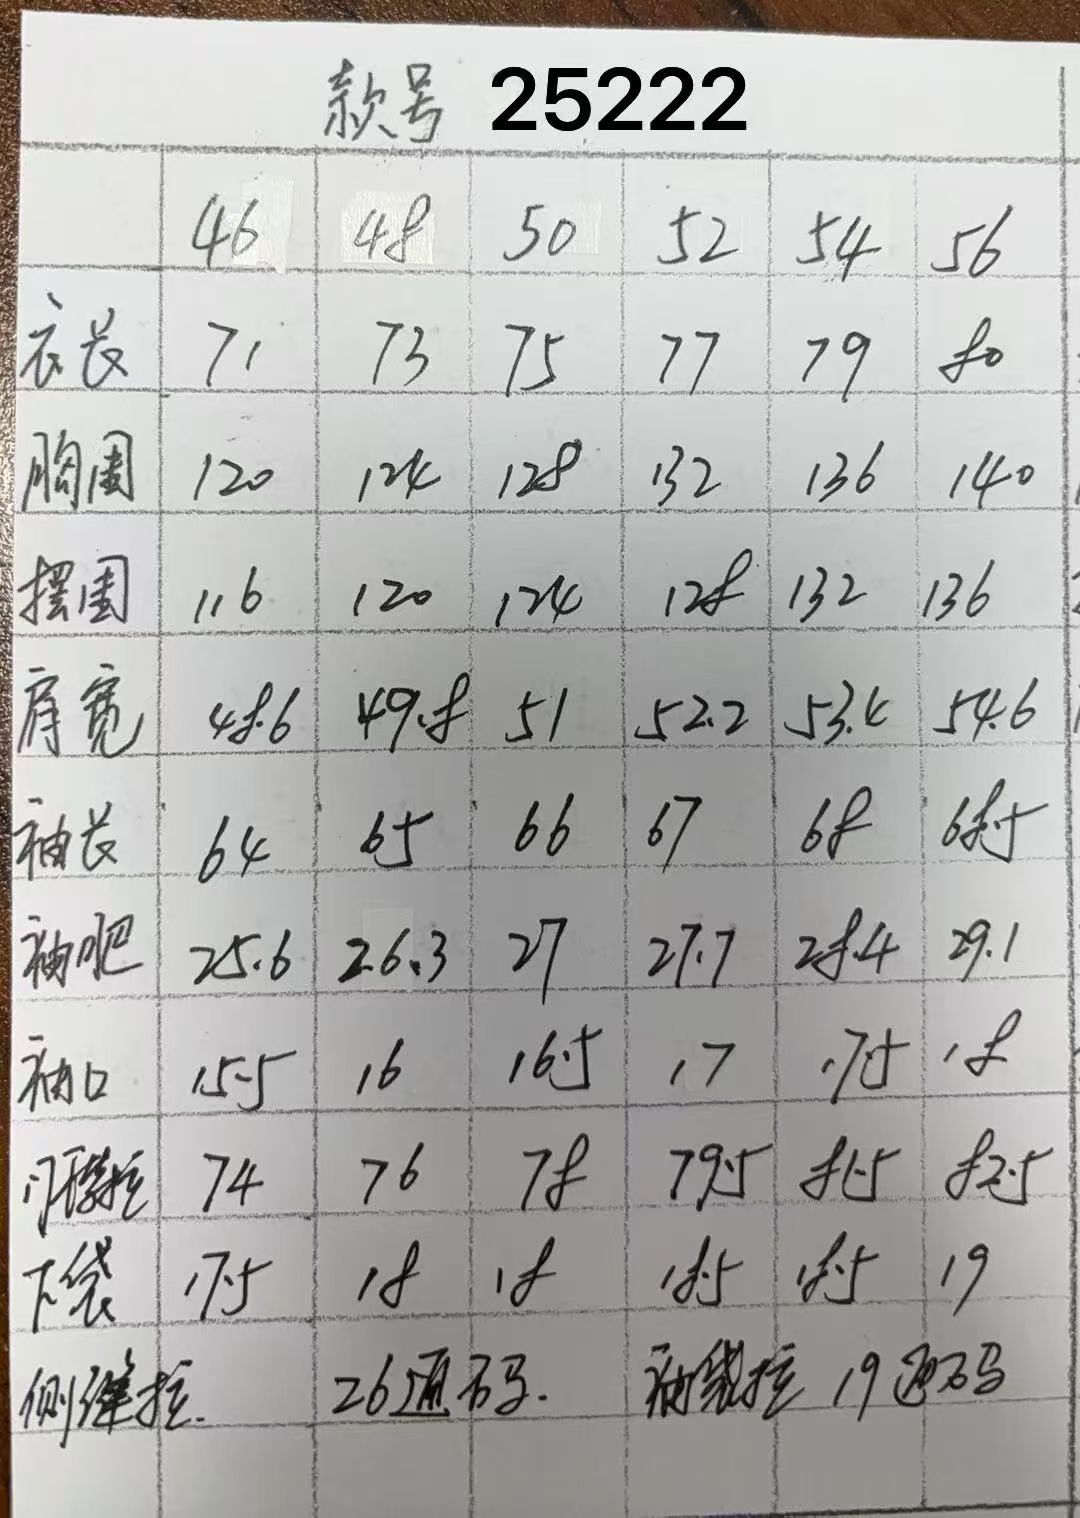 款号 25222
46 48 50 52 54 56
衣长 71 73 75 77 79 80
胸围 120 124 128 132 136 140
摆围 116 120 124 128 132 136
肩宽 48.6 49.8 51 52.2 53.4 54.6
袖长 64 65 66 67 68 68.5
袖吧 25.6 26.3 27 27.7 28.4 29.1
袖口 15.5 16 16.5 17 17.5 18
门襟拉 74 76 78 79.5 81.5 82.5
下袋 17.5 18 18 18.5 18.5 19
侧缝拉. 26通码. 袖袋拉 19通码